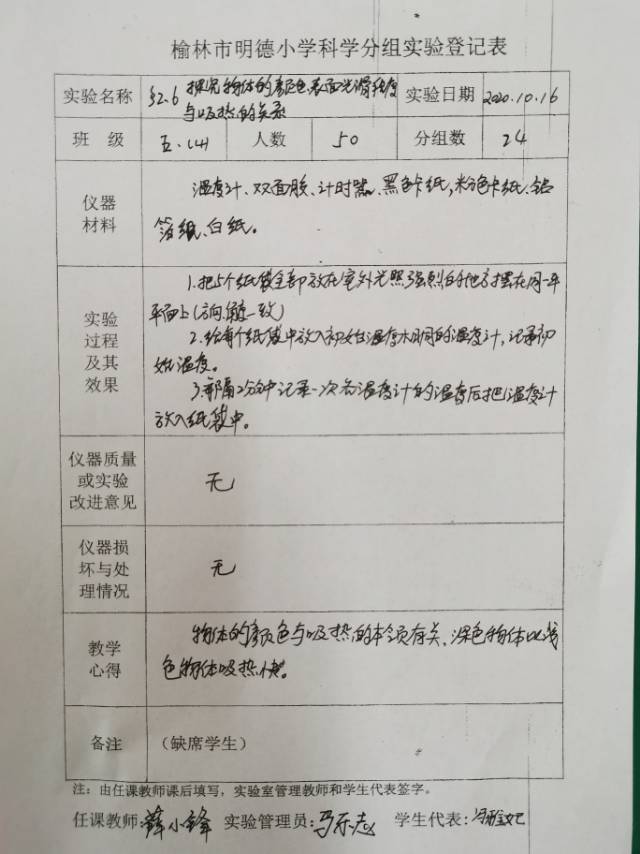 榆林市明德小学科学分组实验登记表
实验名称 §2.6 探究物体的颜色、表面光滑程度
与吸热的关系
实验日期 2020.10.16
班 级 五.(4) 人数 50 分组数 24
仪器
材料
温度计、双面胶、计时器、黑色卡纸,粉色卡纸、铝
箔纸、白纸。
实验
过程
及其
效果
1.把5个纸袋全部放在室外光照强烈的地方摆在同一平
平面上(方向、角度一致)
2.给每个纸袋中放入初始温度相同的温度计,记录初
始温度。
3.每隔2分钟记录一次各温度计的温度后把温度计
放入纸袋中。
仪器质量
或实验
改进意见
无
仪器损
坏与处
理情况
无
教学
心得
物体的颜色与吸热的本领有关,深色物体比浅
色物体吸热快。
备注 (缺席学生)
注:由任课教师课后填写,实验室管理教师和学生代表签字。
任课教师:薛小锋 实验管理员:马乐志 学生代表: